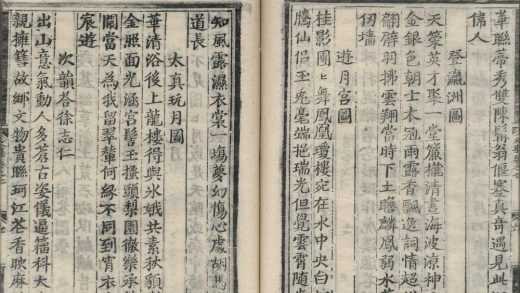 華聯蒂秀雙陳髯翁偃蹇真奇遇見此
偉人
登瀛洲圖
天策英才聚一堂
清晝海波涼神
金銀色朝士衣冠雨露香飄逸詞情超
羽拂雲翔當時下土瞻麟鳳弱水
仞墻
遊月宮圖
桂影團團舞鳳凰瓊樓宛在水中央白
騰仙侶玉兔毫端挹瑞光但覺雲霄隨
知風露濕衣裳一塲夢幻傷心處胡馬
道長
太真玩月圖
華清浴後上龍樓得與氷娥共素秋額
金照面光涵宮髻玉搔頭梨園徹樂承
闕當天為我留翠輦何緣不同到宵衣
宸遊
次韻答徐志仁
出山意氣動人多蒼古姿儀逼篇科大
親擁篲故鄉文物貴聯珂江茶香
麻